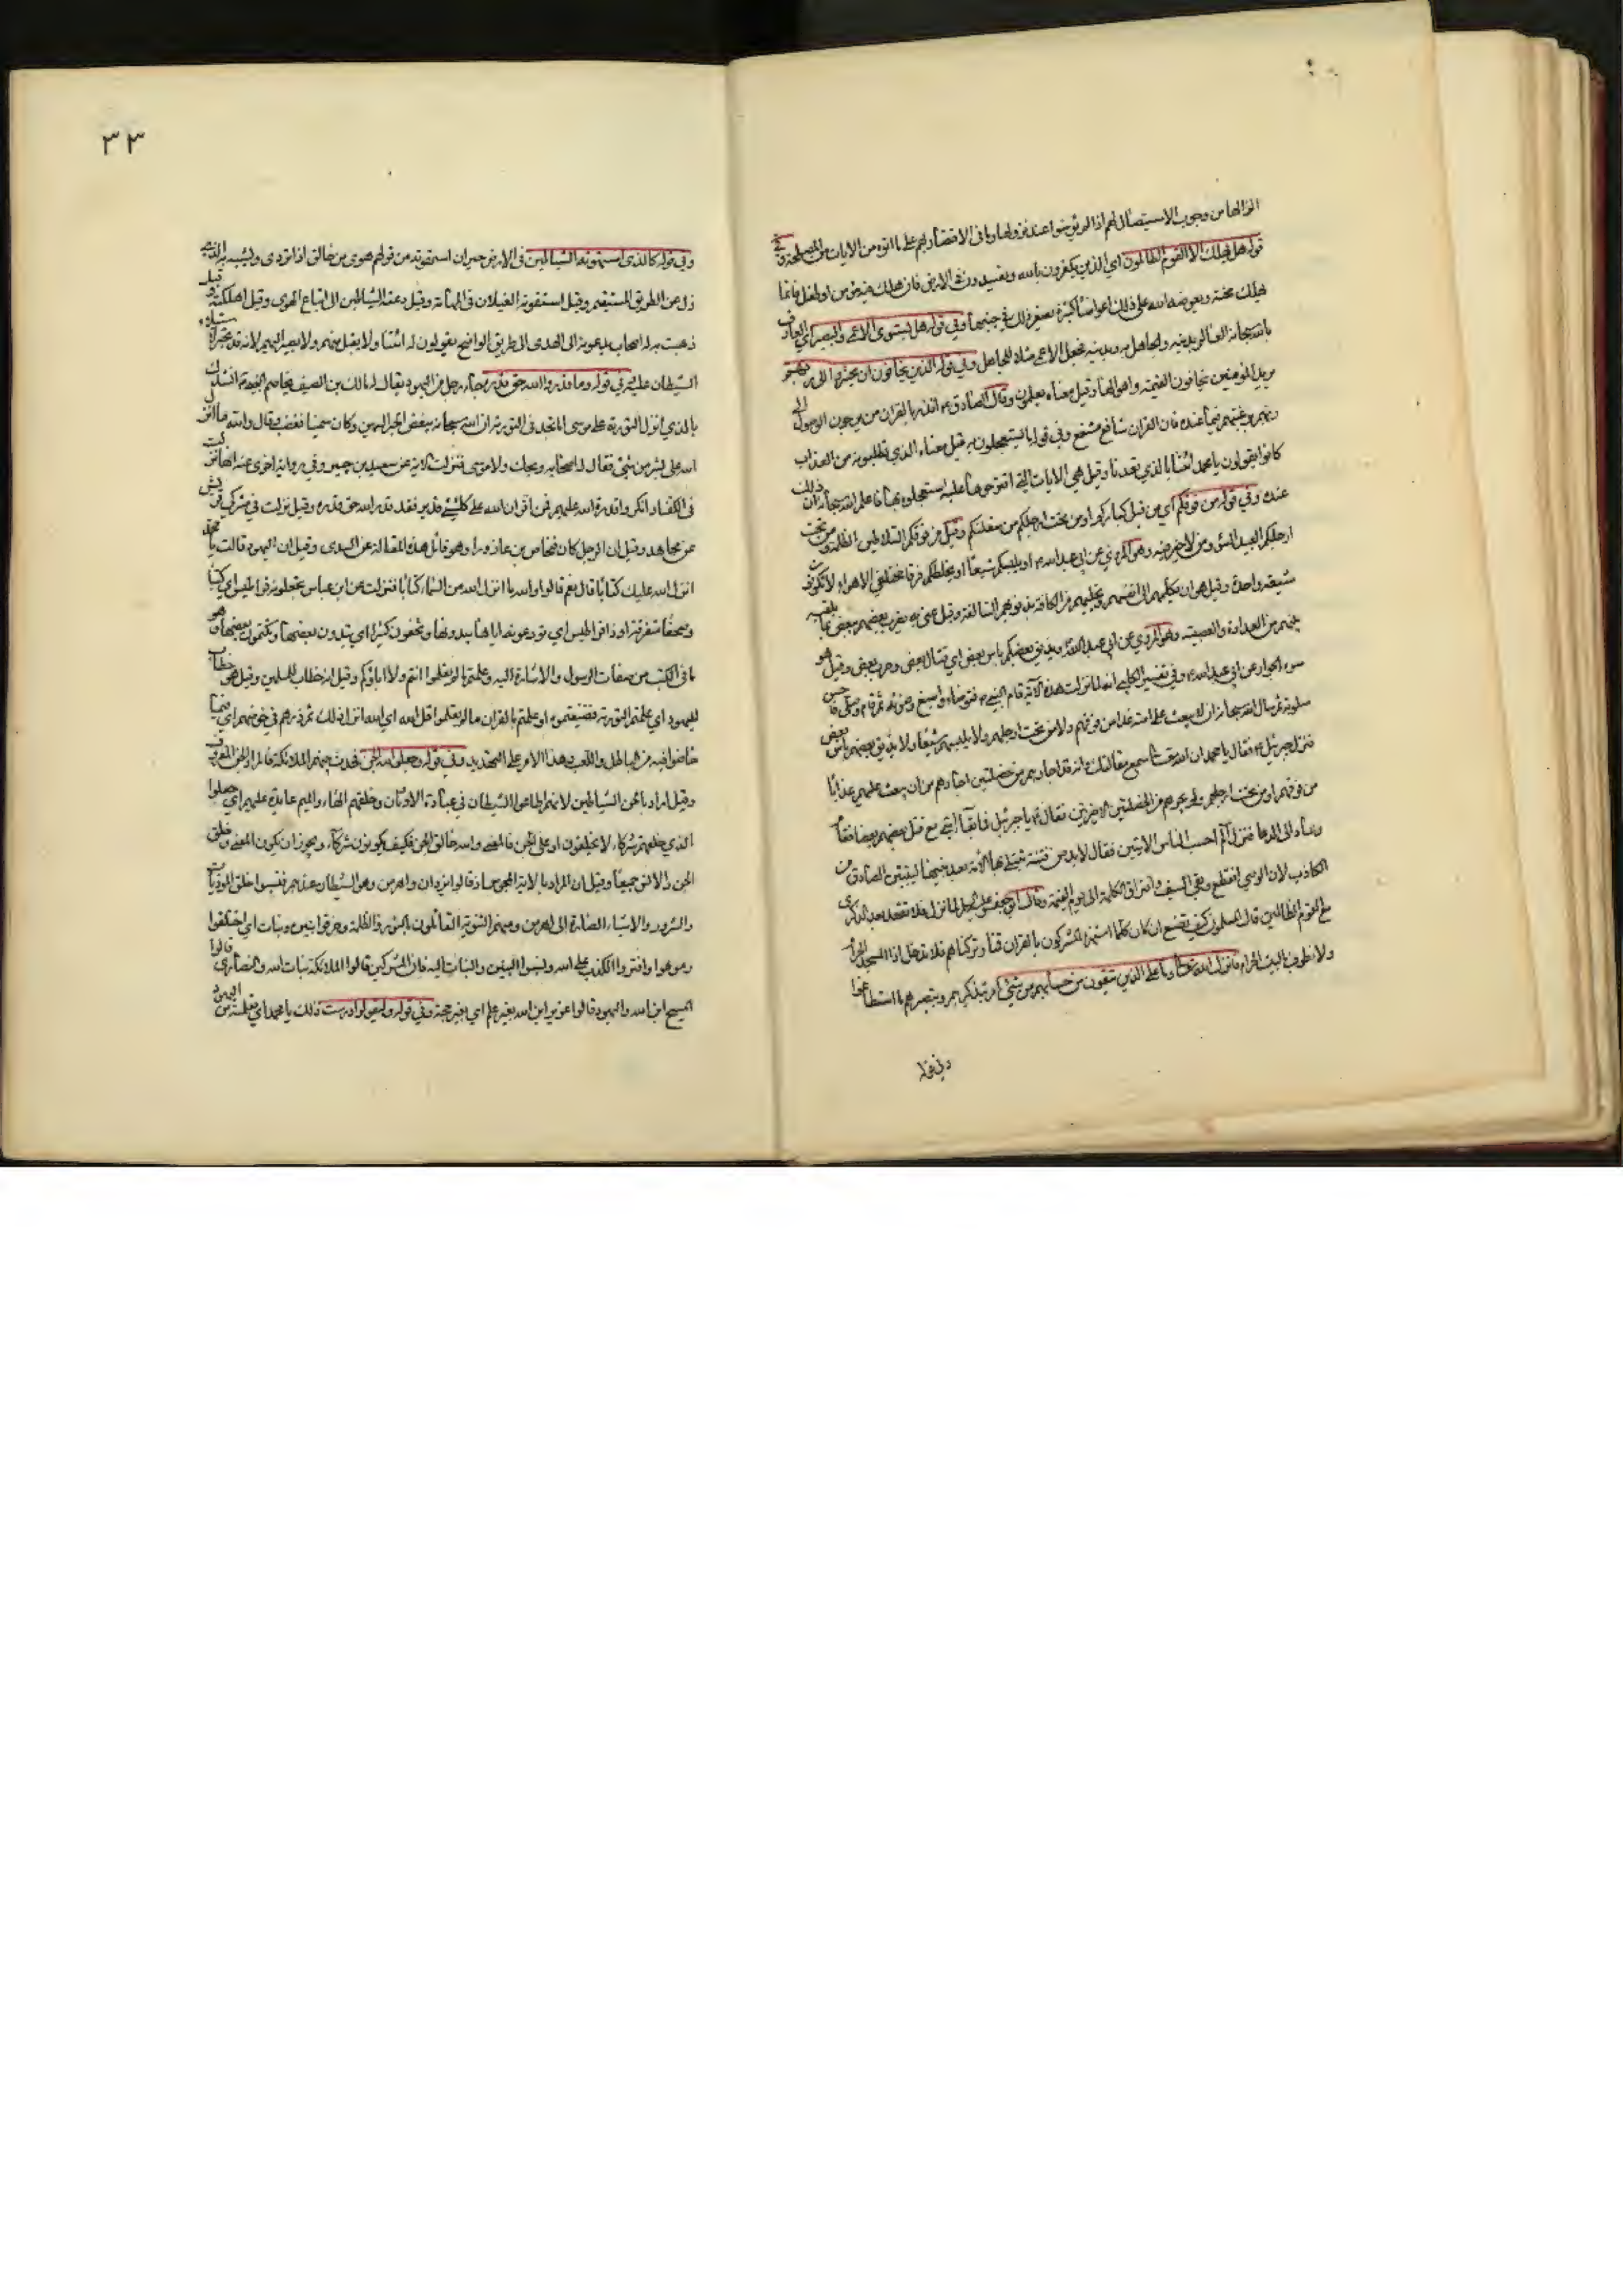 انزالها من وجوب الاستيصال لهم اذا لم يؤمنوا عند نزولها وما في الاقتصار بهم على ما اتوه من الايات من المصلحة وفي
قوله هل يهلك الا القوم الظالمون اي الذين يكفرون بالله ويفسدون في الارض فان هلك فيه مؤمن او طفل فانما
يهلك محنة ويعوضه الله على ذلك اعواضا كثيرة يصغر ذلك في جنبها وفي قوله هل يستوى الاعمى والبصير اي العارف
بالله سبحانه العالم بدينه والجاهل به وبدينه فجعل الاعمى مثلا للجاهل وفي قوله الذين يخافون ان يحشروا الى ربهم
يريد المؤمنين يخافون القيمة واهوالها وقيل معناه يعلمون وقال الصادق ع انذر بالقران من يرجون الوصول الى
ربهم برغبتهم فيما عنده فان القران شافع مشفع وفي قوله ما تستعجلون به قيل معناه الذي تطلبونه من العذاب
كانوا يقولون يا محمد ائتنا بالذي تعدنا وقيل هي الايات التي اقترحوها عليه استعجلوه بها فاعلم الله سبحانه ان ذلك
عنده وفي قوله من فوقكم اي من قبل كباركم او من تحت ارجلكم من سفلتكم وقيل من فوقكم السلاطين الظلمة ومن تحت
ارجلكم العبيد السوء ومن لا خير فيه وهو المروي عن ابي عبد الله ع او يلبسكم شيعا او يخلطكم فرقا مختلفي الاهواء لا تكونون
شيعة واحدة وقيل هو ان يكلهم الى انفسهم ويخليهم من الطافه بذنوبهم السالفة وقيل عنى به يضرب بعضهم ببعض بما يلقيه
بينهم من العداوة والعصبية وهو المروي عن ابي عبد الله ع ويذيق بعضكم باس بعض اي قتال بعض وحرب بعض وقيل هو
سوء الجوار عن ابي عبد الله ع وفي تفسير الكلبي انه لما نزلت هذه الاية قام النبي ص فتوضاء واسبغ وضوئه ثم قام وصلى فاحسن
صلوته ثم سال الله سبحانه ان لا يبعث على امته عذابا من فوقهم ولا من تحت ارجلهم ولا يلبسهم شيعا ولا يذيق بعضهم باس بعض
فنزل جبرئيل ع فقال يا محمد ان الله تعالى سمع مقالتك وانه قد اجارهم من خصلتين اجارهم من ان يبعث عليهم عذابا
من فوقهم او من تحت ارجلهم ولم يجرهم من الخصلتين الاخرتين فقال ع يا جبرئيل فما بقاء امتي مع قتل بعضهم بعضا فقام
وعاد الى الدعا فنزل الم احسب الناس الايتين فقال لا بد من فتنة تبتلى بها الامة بعد نبيها ليتبين الصادق من
الكاذب لان الوحي انقطع وبقي السيف وافتراق الكلمة الى يوم القيمة وقال ابي جعفر عليه السلام لما نزل فلا تقعد بعد الذكرى
مع القوم الظالمين قال المسلمون كيف نصنع ان كان كلما استهزء المشركون بالقران قمنا وتركناهم فلا ندخل اذا المسجد الحرام
ولا نطوف بالبيت الحرام فانزل الله تعالى وما على الذين يتقون من حسابهم من شيء امر بتذكيرهم وتبصرهم ما استطاعوا
وفي قوله
٣٣
وفي قوله كالذي استهوته الشياطين في الارض حيران استهوته من قولهم هوى من حالق اذا تردى ويشبه به الذي
زل عن الطريق المستقيم وقيل استغوته الغيلان في المهامة وقيل دعته الشياطين الى اتباع الهوى وقيل اهلكته وقيل
ذهبت به له اصحاب يدعونه الى الهدى الى طريق الواضح يقولون له ائتنا ولا يقبل منهم ولا يصير اليهم لانه قد تحير لاستيلاء
الشيطان عليه وفي قوله وما قدروا الله حق قدره جاء رجل من اليهود يقال له مالك بن الصيف يخاصم النبي فقال له انشدك
بالذي انزل التورية على موسى اما تجد في التورية ان الله سبحانه يبغض الحبر السمين وكان سمينا فغضب وقال والله ما انزل
الله على بشر من شيء فقال له اصحابه ويحك ولا موسى فنزلت الاية عن سعيد بن جبير وفي رواية اخرى عنه انها نزلت
في الكفار انكروا قدرة الله عليهم فمن اقر ان الله على كل شيء قدير فقد قدر الله حق قدره وقيل نزلت في مشركي قريش
عن مجاهد وقيل ان الرجل كان فنحاص بن عازورا وهو قائل هذه المقالة عن السدى وقيل ان اليهود قالت يا محمد
انزل الله عليك كتابا قال نعم قالوا والله ما انزل الله من السماء كتابا فنزلت عن ابن عباس تجعلونه قراطيس اي كتبا
وصحفا متفرقة او ذا قراطيس اي تودعونه اياها يبدونها وتخفون كثيرا اي يبدون بعضها ويكتمون بعضها وهو
ما في الكتب من صفات الرسول والاشارة اليه وعلمتم ما لم يعلموا انتم ولا اباؤكم وقيل انه خطاب للمسلمين وقيل هو خطاب
لليهود اي علمتم التورية فضيعتموه او علمتم بالقران ما لم يعلموا قل الله اي الله انزل ذلك ثم ذرهم في خوضهم اي فيما
خاضوا فيه من الباطل واللعب وهذا الامر على التهديد وفي قوله وجعلوا لله الجن فحدث عنهم الملائكة فالمراد الجن المعروف
وقيل اراد بالجن الشياطين لانهم اطاعوا الشيطان في عبادة الاوثان وخلقهم الهاء والميم عائدة عليهم اي جعلوا
الذي خلقهم شركاء لا يخلقون او على الجن فالمعنى والله خالق الجن فكيف يكونون شركاء ويجوز ان يكون المعنى وخلق
الجن والانس جميعا وقيل ان المراد بالاية المجوس اذ قالوا يزدان واهرمن وهو الشيطان عندهم فنسبوا خلق الموذيات
والشرور والاشياء الضارة الى اهرمن ومنهم الثنوية القائلون بالنور والظلمة وخرقوا بنين وبنات اي اختلقوا
وموهوا وافتروا الكذب على الله ونسبوا البنين والبنات اليه فان المشركين قالوا الملائكة بنات الله والنصارى قالوا
المسيح ابن الله واليهود قالوا عزير ابن الله بغير علم اي بغير حجة وفي قوله وليقولوا درست ذلك يا محمد اي تعلمته من اليهود